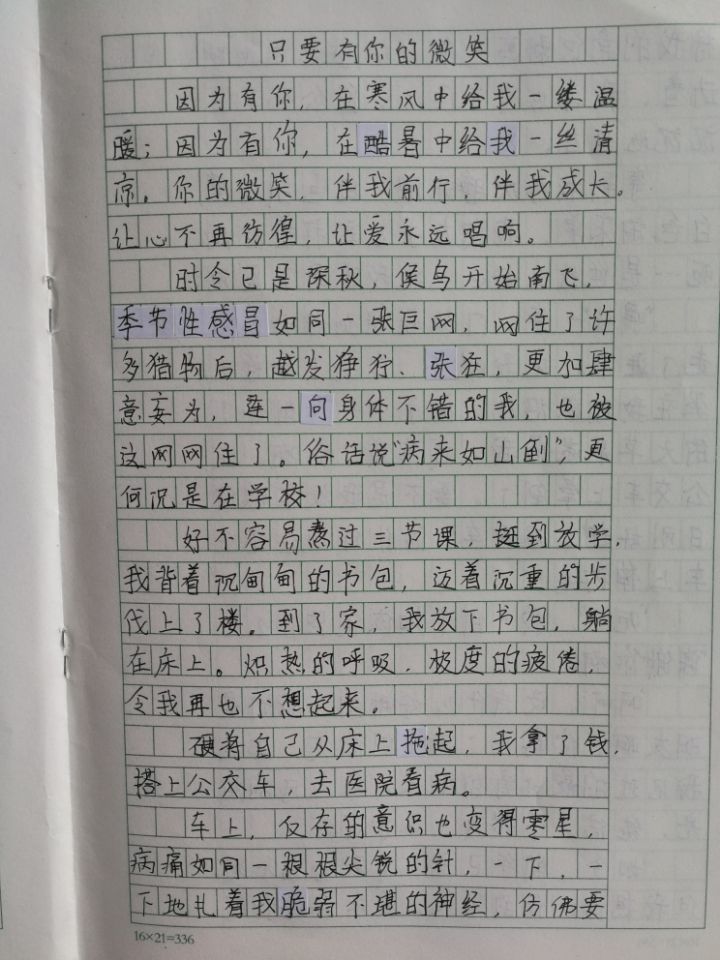 只要有你的微笑
因为有你，在寒风中给我一缕温
暖；因为有你，在酷暑中给我一丝清
凉。你的微笑，伴我前行，伴我成长。
让心不再彷徨，让爱永远唱响。
时令已是深秋，候鸟开始南飞，
季节性感冒如同一张巨网，网住了许
多猎物后，越发狰狞、张狂，更加肆
意妄为，连一向身体不错的我，也被
这网网住了。俗话说“病来如山倒”，更
何况是在学校！
好不容易熬过三节课，挺到放学，
我背着沉甸甸的书包，迈着沉重的步
伐上了楼。到了家，我放下书包，躺
在床上。炽热的呼吸，极度的疲倦，
令我再也不想起来。
硬将自己从床上拖起，我拿了钱，
搭上公交车，去医院看病。
车上，仅存的意识也变得零星，
病痛如同一根根尖锐的针，一下，一
下地扎着我脆弱不堪的神经，仿佛要
16×21=336